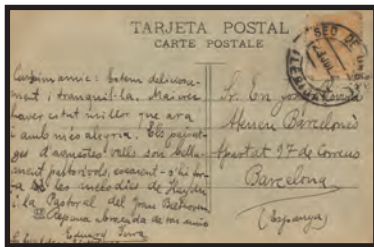 TARJETA POSTAL
CARTE POSTALE
SEO DE UR
Caríssim amic: Estem deliciosa-
ment i tranquil·la. Mai crec
haver estat millor que ara
i amb més alegria. Els paisat-
ges d'aquestes valls son bella-
ment pastorívols, escaient-s'hi for-
ça les melodies de Haydn
i la Pastoral del gran Beethoven
abraçada de ton amic
Eduard
Sr. En
Ateneu Barcelonès
Apartat 97 de Correus
Barcelona
(Espanya)